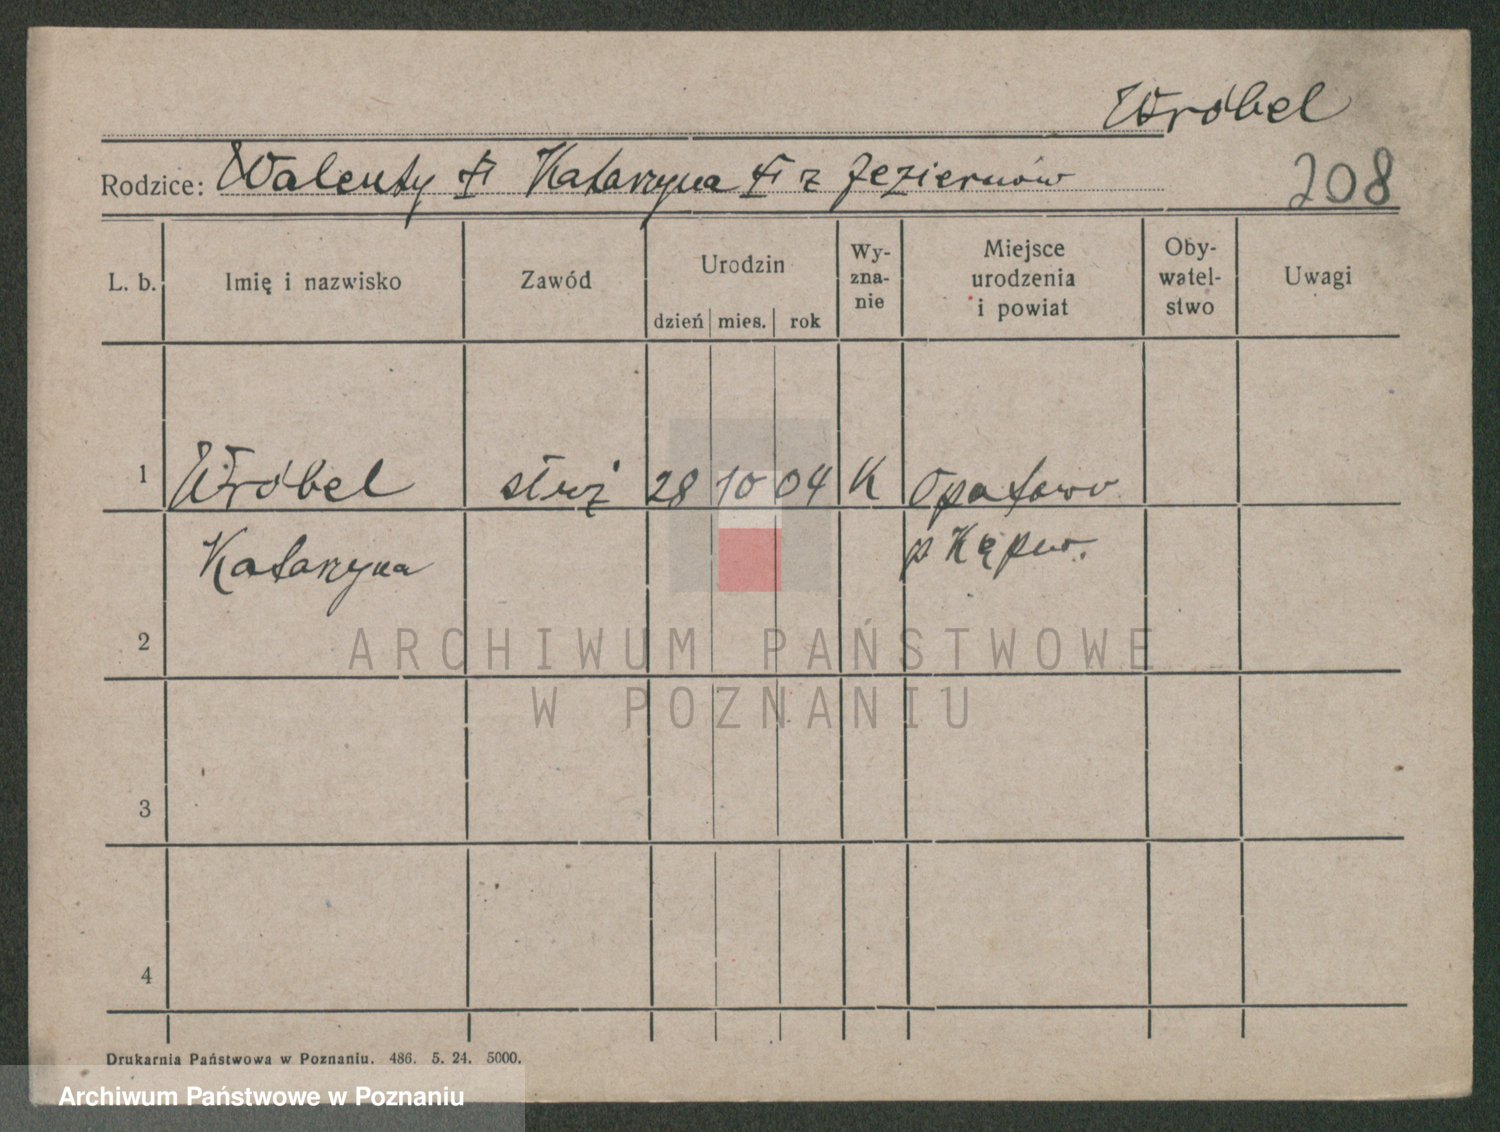 Wróbel
Rodzice: Walenty Katarzyna z Jeziernów
208
L. b. Imię i nazwisko Zawód Urodzin dzień mies. rok Wy-zna-nie Miejsce urodzenia i powiat Oby-watel-stwo Uwagi
1 Wróbel służ 28 10 04 K Opatowo
Katarzyna p Kępno.
2
ARCHIWUM PAŃSTWOWE
W POZNANIU
3
4
Drukarnia Państwowa w Poznaniu. 486. 5. 24. 5000.
Archiwum Państwowe w Poznaniu